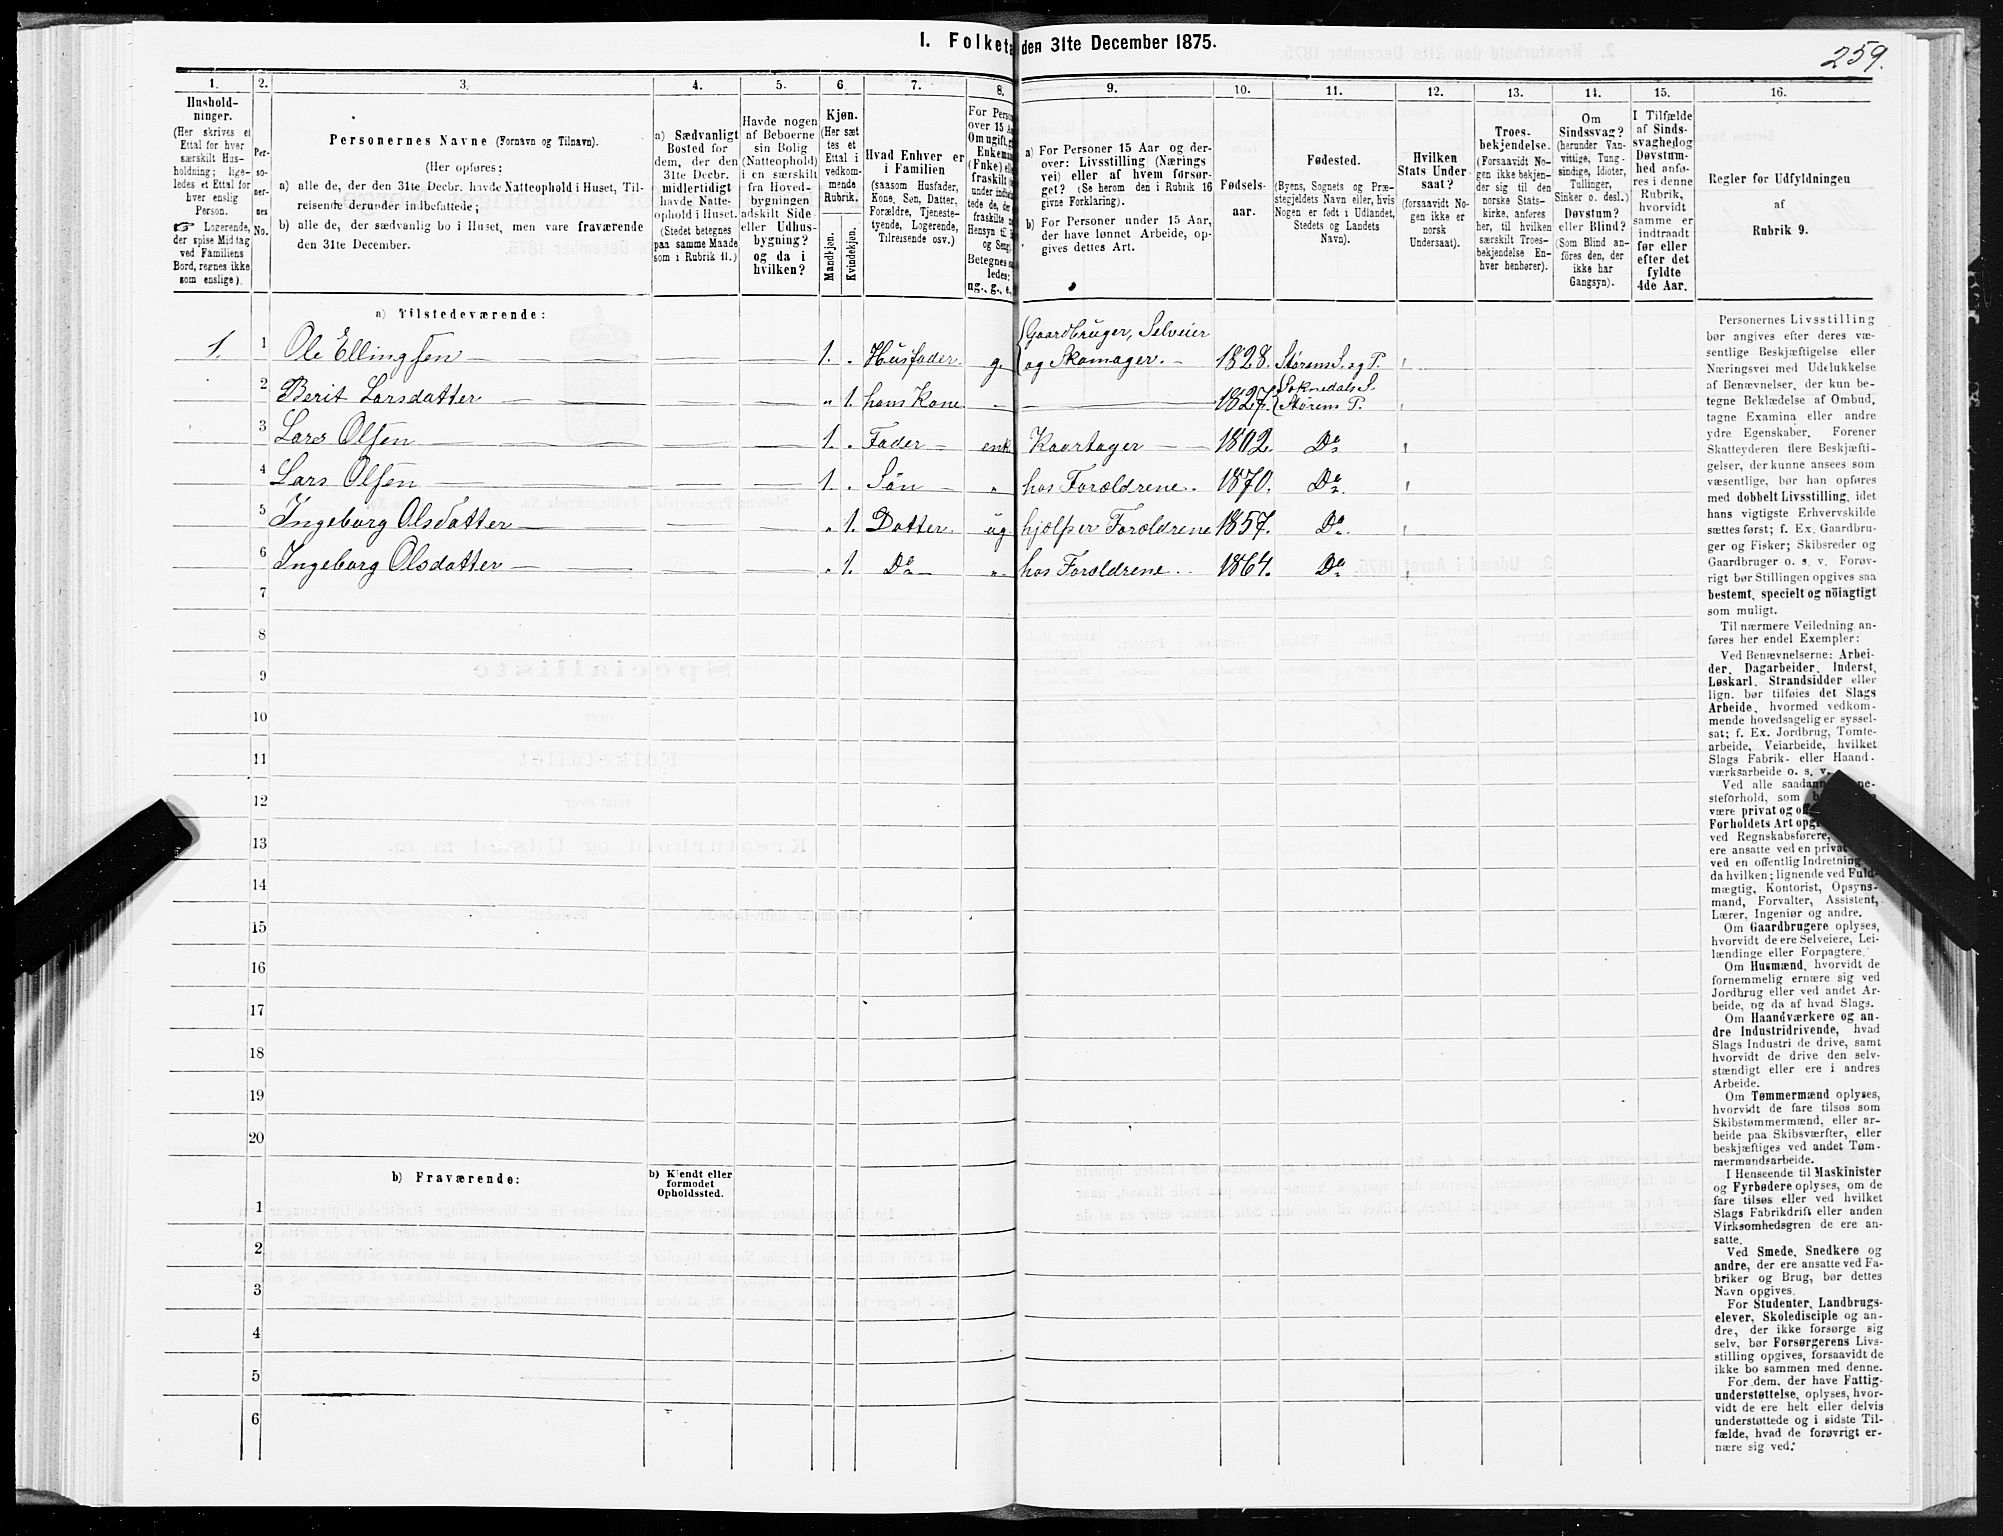 1. Folketa den 31te December 1875.
259.
1.
2.
3.
4.
5.
6
7.
8.
9.
10.
11.
12.
13.
14.
15.
16.
Hushold-
ninger.
(Her skrives et
Ettal for hver
særskilt Hus-
holdning; lige-
ledes et Ettal for
hver enslig
Person.
☞ Logerende,
der spise Middag
ved Familiens
Bord, regnes ikke
som enslige).
Per-
so-
ner-
nes
No.
Personernes Navne (Fornavn og Tilnavn).
(Her opføres:
a) alle de, der den 31te Decbr. havde Natteophold i Huset, Til-
reisende derunder indbefattede;
b) alle de, der sædvanlig bo i Huset, men vare fraværende
den 31te December.
a) Sædvanligt
Bosted for
dem, der den
31te Decbr.
midlertidigt
havde Natte-
ophold i Huset.
(Stedet betegnes
paa samme Maade
som i Rubrik 11.)
Havde nogen
af Beboerne
sin Bolig
(Natteophold)
i en særskilt
fra Hoved-
bygningen
adskilt Side-
eller Udhus-
bygning?
og da i
hvilken?
Kjøn.
(Her sæt-
tes et
Ettal i
vedkom-
mende
Rubrik.
Mandkjøn.
Kvindekjøn.
Hvad Enhver er
i Familien
(saasom Husfader,
Kone, Søn, Datter,
Forældre, Tjeneste-
tyende, Logerende,
Tilreisende osv.)
For Perso
over 15 Aa
Om ugift, g
Enkeman
(Fnke) ell
fraskilt
under indb
tede de, d
fraskilte
Hensyn til
og Seng.
Betegnes s
ledes:
ug., g., e.,
a) For Personer 15 Aar og der-
over: Livsstilling (Nærings
vei) eller af hvem forsør-
get? (Se herom den i Rubrik 16
givne Forklaring).
b) For Personer under 15 Aar,
der have lønnet Arbeide, op-
gives dettes Art.
Fødsels-
aar.
Fødested.
(Byens, Sognets og Præ-
stegjeldets Navn eller, hvis
Nogen er født i Udlandet,
Stedets og Landets
Navn).
Hvilken
Stats Under-
saat?
(forsaavidt No-
gen ikke er
norsk
Undersaat).
Troes-
bekjendelse.
(Forsaavidt No-
gen ikke bekjen-
der sig til den
norske Stats-
kirke, anføres
her, til hvilken
særskilt Troes-
bekjendelse En-
hver henhører).
Om
Sindssvag?
(herunder Van-
vittige, Tung-
sindige, Idioter,
Tullinger,
Sinker o. desl.)
Døvstum?
eller Blind?
(Som Blind an-
føres den, der
ikke har
Gangsyn).
I Tilfælde
af Sinds-
svaghed og
Døvstum-
hed anfø-
res i denne
Rubrik,
hvorvidt
samme er
indtraadt
før eller
efter det
fyldte
4de Aar.
Regler for Udfyldningen
af
Rubrik 9.
a) Tilstedeværende:
1. 1 Ole Ellingsen — — — 1. „ Husfader g. {Gaardbruger, Selveier
og Skomager. — 1828. Størens S. og P. ,
2 Berit Larsdatter — — — „ 1. hans Kone — — 1827. {Soknedals S.
Størens P. ,
3 Lars Olsen — — — 1. „ Fader — enk Kaartager — 1802. Do ,
4 Lars Olsen — — — 1. „ Søn — „ hos Forældrene. 1870. Do. ,
5 Ingeborg Olsdatter — — — „ 1. Datter. ug hjælper Forældrene 1857. Do. ,
6 Ingeborg Olsdatter — — — „ 1. Do — „ hos Forældrene. 1864. Do ,
7
8
9
10
11
12
13
14
15
16
17
18
19
20
b) Fraværende:
b) Kjendt eller
formodet
Opholdssted.
1
2
3
4
5
6
Personernes Livsstilling
bør angives efter deres væ-
sentlige Beskjæftigelse eller
Næringsvei med Udelukkelse
af Benævnelser, der kun be-
tegne Beklædelse af Ombud,
tagne Examina eller andre
ydre Egenskaber. Forener
Skatteyderen flere Beskjæfti-
gelser, der kunne ansees som
væsentlige, bør han opføres
med dobbelt Livsstilling, idet
hans vigtigste Erhvervskilde
sættes først; f. Ex. Gaardbru-
ger og Fisker; Skibsreder og
Gaardbruger o. s. v. Forøv-
rigt bør Stillingen opgives saa
bestemt, specielt og nöiagtigt
som muligt.
Til nærmere Veiledning an-
føres her endel Exempler:
Ved Benævnelserne: Arbei-
der, Dagarbeider, Inderst,
Løskarl, Strandsidder eller
lign. bør tilføies det Slags
Arbeide, hvormed vedkom-
mende hovedsagelig er syssel-
sat; f. Ex. Jordbrug, Tomte-
arbeide, Veiarbeide, hvilket
Slags Fabrik- eller Haand-
værksarbeide o. s. v.
Ved alle saadann ne-
steforhold, som b
være privat og of
Forholdets Art opg
ved Regnskabsførere,
ere ansatte ved en privat
ved en offentlig Indretning
da hvilken; lignende ved Fuld-
mægtig, Kontorist, Opsyns-
mand, Forvalter, Assistent,
Lærer, Ingeniør og andre.
Om Gaardbrugere oplyses,
hvorvidt de ere Selveiere, Lei-
lændinge eller Forpagtere.
Om Husmænd, hvorvidt de
fornemmelig ernære sig ved
Jordbrug eller ved andet Ar-
beide, og da af hvad Slags.
Om Haandværkere og an-
dre Industridrivende, hvad
Slags Industri de drive, samt
hvorvidt de drive den selv-
stændigt eller ere i andres
Arbeide.
Om Tømmermænd oplyses,
hvorvidt de fare tilsøs som
Skibstømmermænd, eller ar-
beide paa Skibsværfter, eller
beskjæftiges ved andet Tøm-
mermandsarbeide.
I Henseende til Maskinister
og Fyrbødere oplyses, om de
fare tilsøs eller ved hvilket
Slags Fabrikdrift eller anden
Virksomhedsgren de ere an-
satte.
Ved Smede, Snedkere og
andre, der ere ansatte ved Fa-
briker og Brug, bør dettes
Navn opgives.
For Studenter, Landbrugs-
elever, Skoledisciple og an-
dre, der ikke forsørge sig
selv, bør Forsørgerens Livs-
stilling opgives, forsaavidt de
ikke bo sammen med denne.
For dem, der have Fattig-
understøttelse, oplyses, hvor-
vidt de ere helt eller delvis
understøttede og i sidste Til-
fælde, hvad de forøvrigt er-
nære sig ved.